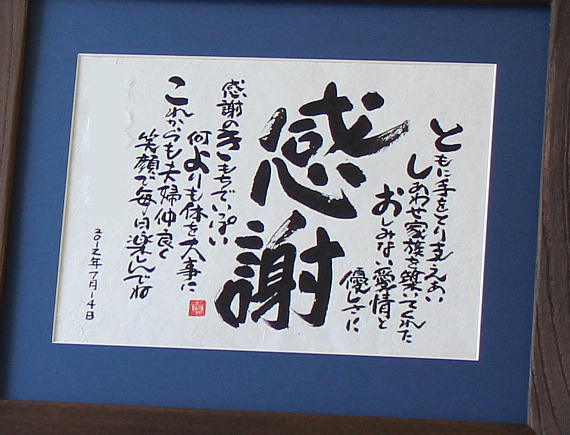 ともに手をとり支えあい
しあわせ家族を築いてくれた
おしみない愛情と
優しさに
感謝
感謝のきもちでいっぱい
何よりも体を大事に
これからも夫婦仲良く
笑顔で毎日楽しんでね
2012年7月14日